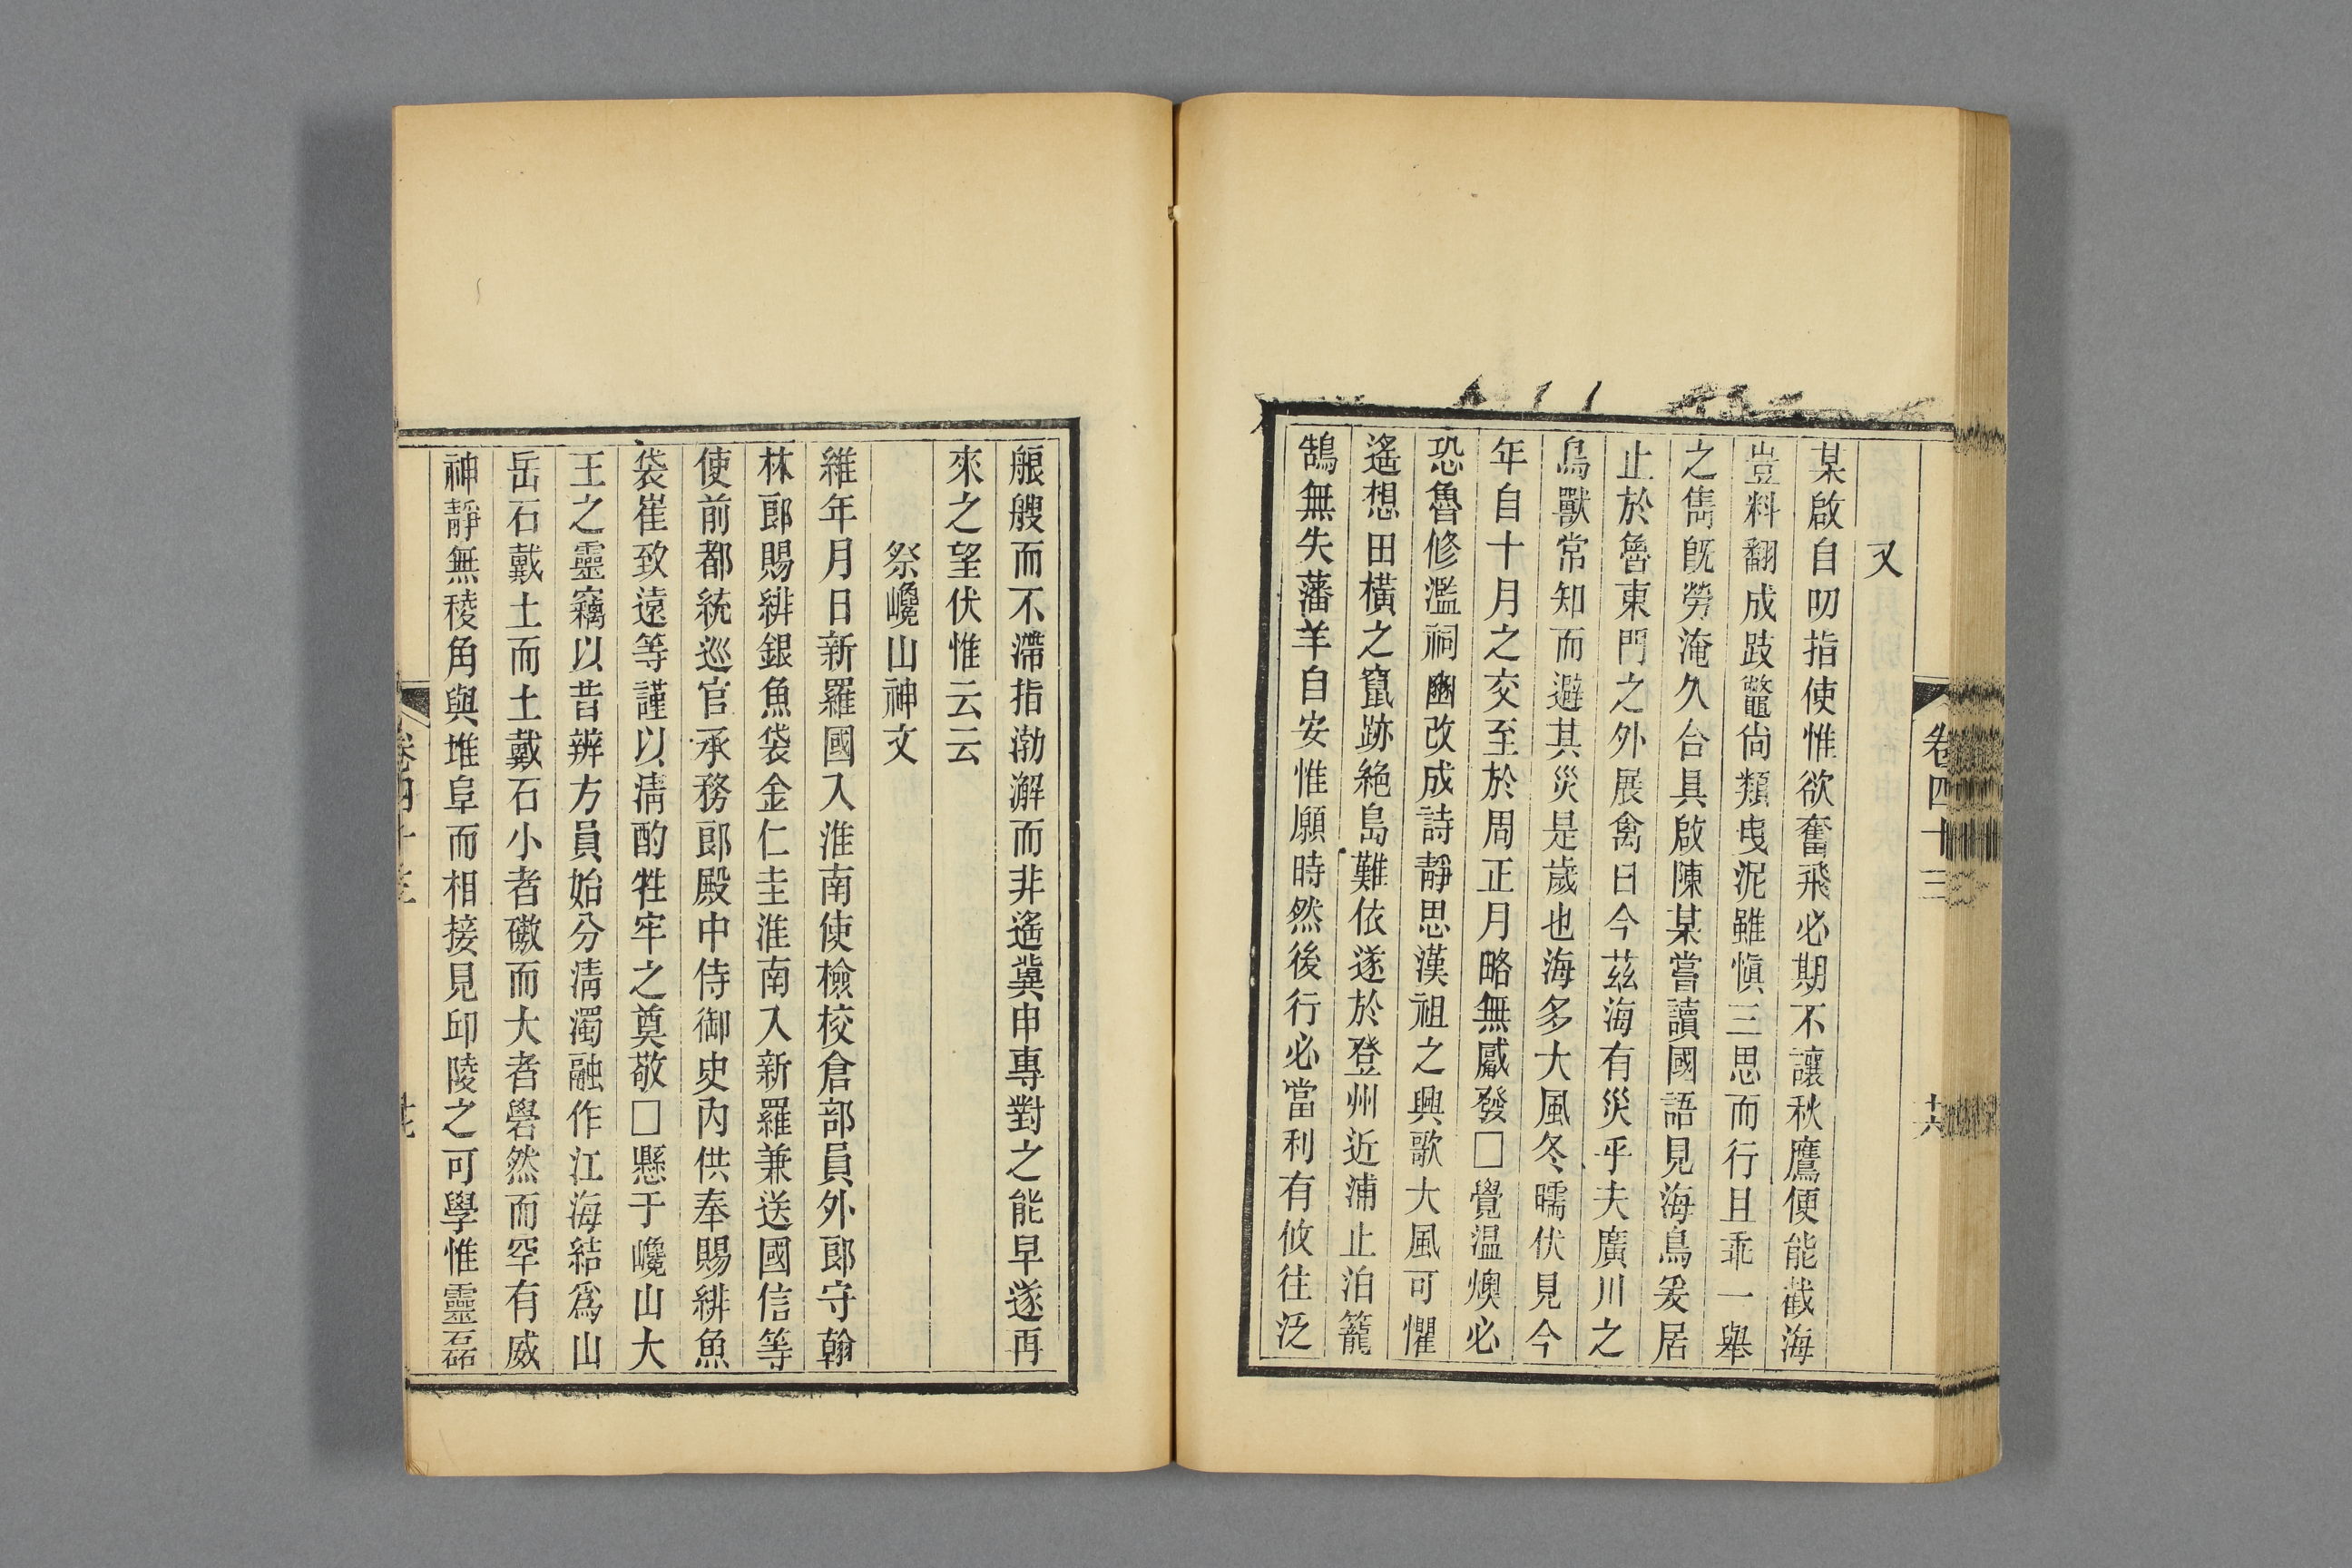 卷四十三
十六
又
某啟自叨指使惟欲奮飛必期不讓秋鷹便能截海
豈料翻成跂鼈尙類曳泥雖愼三思而行且乖一舉
之雋旣勞淹久合具啟陳某嘗讀國語見海鳥爰居
止於魯東門之外展禽曰今茲海有災乎夫廣川之
鳥獸常知而避其災是歲也海多大風冬㬉伏見今
年自十月之交至於周正月略無觱發□覺溫燠必
恐魯修濫祠豳改成詩靜思漢祖之興歌大風可懼
遙想田橫之竄跡絶島難依遂於登州近浦止泊籠
鵠無失藩羊自安惟願時然後行必當利有攸往泛
艆艘而不滯指渤澥而非遙冀申專對之能早遂再
來之望伏惟云云
祭巉山神文
維年月日新羅國入淮南使檢校倉部員外郎守翰
林郎賜緋銀魚袋金仁圭淮南入新羅兼送國信等
使前都統巡官承務郎殿中侍御史內供奉賜緋魚
袋崔致遠等謹以淸酌牲牢之奠敬□懸于巉山大
王之靈竊以昔辨方員始分淸濁融作江海結爲山
岳石戴土而土戴石小者礉而大者礐然而罕有威
神靜無稜角與堆阜而相接見邱陵之可學惟靈磊
卷四十三